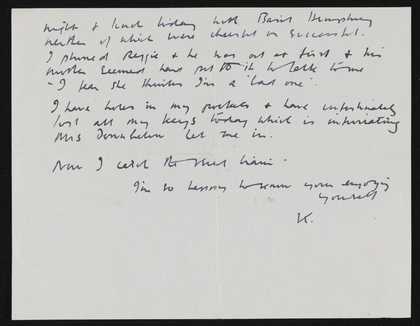 night & lunch today with Basil
neither of which were cheerful or successful.
I phoned Reggie & he was out at first & his
mother seemed hard put to it to talk to me
- I fear she thinks I'm a 'bad one'.
I have holes in my pockets & have unfortunately
lost all my keys today which is infuriating
Mrs let me in.
Now I catch the train.
I'm so happy to know you're enjoying
yourself
K.